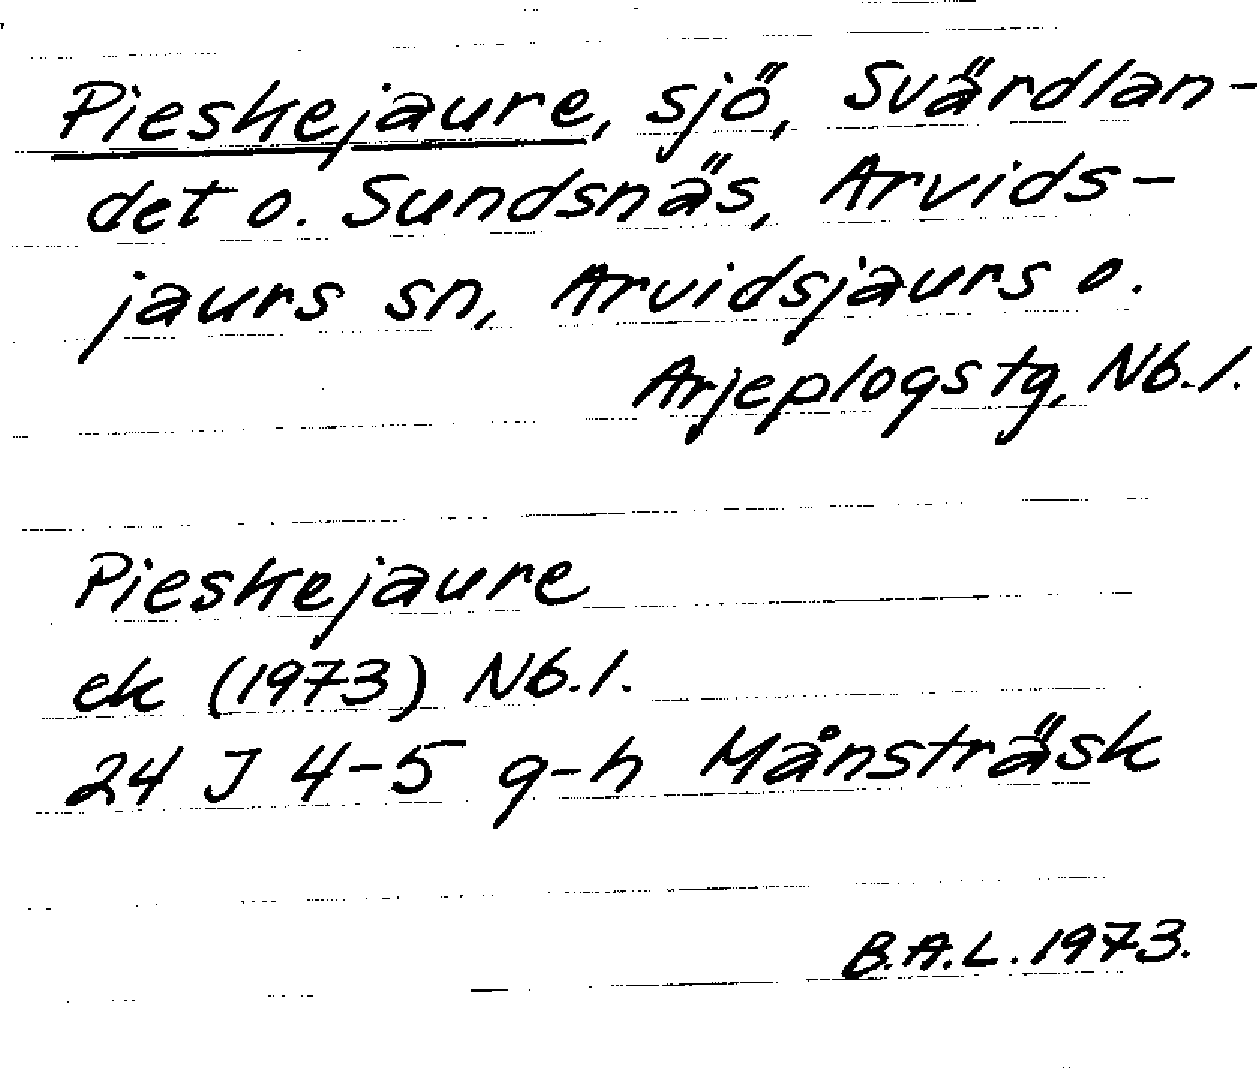 Pieskejaure, sjö, Svärdlan-
det o. Sundsnäs, Arvids-
jaurs sn, Arvidsjaurs o.
Arjeplogs tg, Nb. l.
Pieskejaure
ek (1973) Nb. l.
24 J 4-5 g-h Månsträsk
B.A.L. 1973.